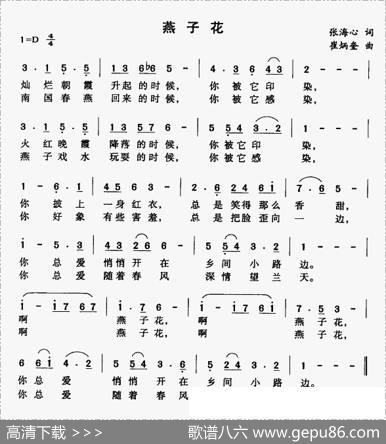 燕子花
1=D 4/4
张海心 词
崔炳奎 曲
3·1 5·5 | 1 3 6 ♭6 5 - | 4·3 6 4 3 | 2 - - - |
灿烂朝霞 升起的时候， 你被它印 染，
南国春燕 回来的时候， 你被它感 染，
3·1 5·5 | 1 3 1 5 6 - | 5 5 4 3·2 | 1 - - - |
火红晚霞 降落的时候， 你被它印 染，
燕子戏水 玩耍的时候， 你被它感 染，
1 - 6·1 | 4 5 6 3 - | 6·2 2 4 6 1 | 7·6 5 - |
你 披上 一身红衣， 总是笑得那么 香 甜，
你 好象 有些害羞， 总是把脸歪向 一 边，
1 - 5·3 | 4 3 2 6 6 - | 5 5 4 3·2 | 1 - - - |
你 总爱 悄悄开在 乡间小路 边。
你 总爱 随着春风 深情望兰 天。
1 - 1 7 6 7 | 1·7 6 - | 1 - 1 7 6 7 | 1·7 6 - |
啊 燕子花， 啊 燕子花，
啊 燕子花， 啊 燕子花，
6 6 1 4·2 | 5 5 4 3 - | 5·4 3·2 | 1 - - - ‖
你总爱 悄悄开在 乡间小路 边。
你总爱 随着春风
高清下载 >>>
歌谱八六 www.gepu86.com